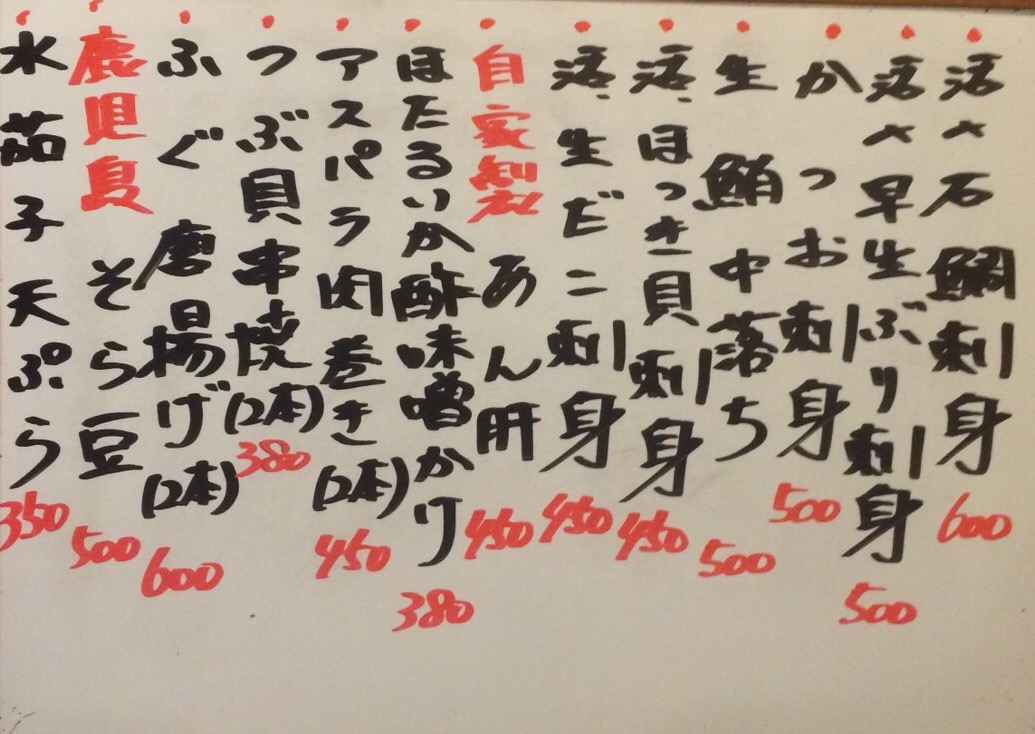 活〆石鯛刺身 600
活〆早生ぶり刺身 500
かつお刺身 500
生鮪中落ち 500
活、ほっき貝刺身 450
活、生だこ刺身 450
自家製 あん肝 450
ほたるいか酢味噌かけ 380
アスパラ肉巻き(2本) 450
つぶ貝串焼(2本) 380
ふぐ唐揚げ(2本) 600
鹿児島 そら豆 500
水茄子天ぷら 350